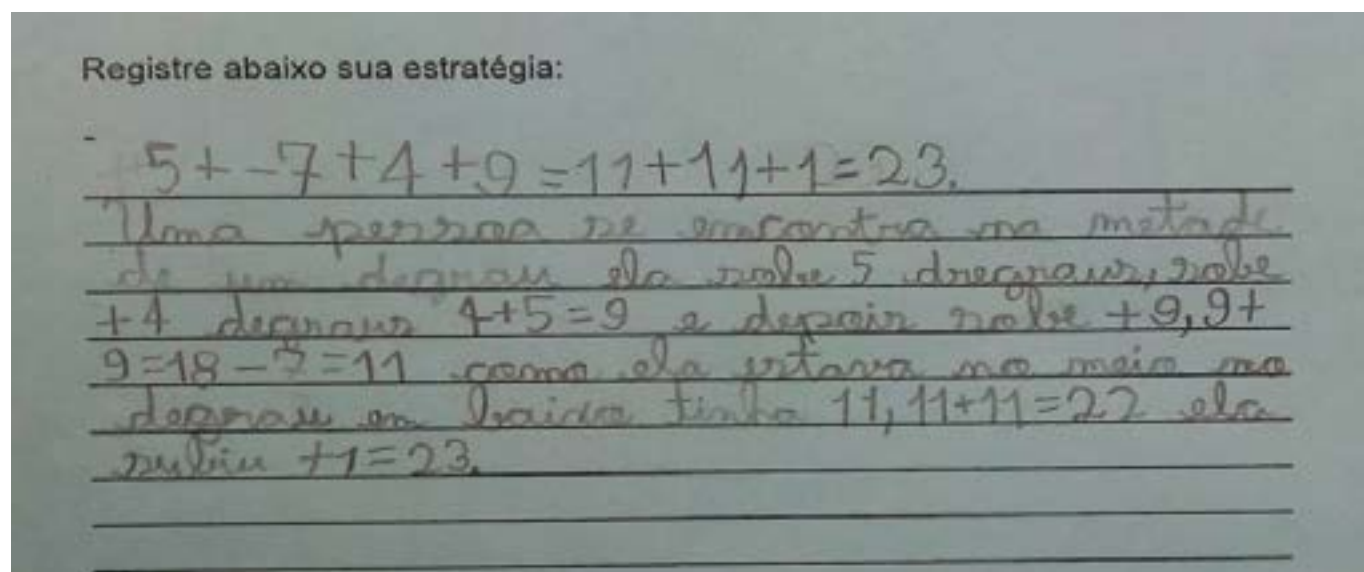 Registre abaixo sua estratégia:
-
5+-7+4+9=11+11+1=23.
Uma pessoa se encontra na metade
de um degrau ela sobe 5 dregraus, sobe
+4 degraus 4+5=9 e depois sobe +9, 9+
9=18-7=11 como ela estava no meio no
degrau em baixo tinha 11, 11+11=22 ela
subiu +1=23.